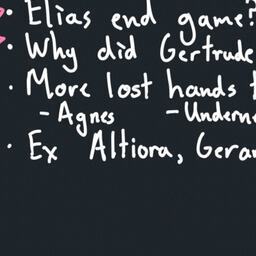 • Elias end game?
• Why did Gertrude
• More lost hands
- Agnes - Undern
• Ex Altiora, Gerar